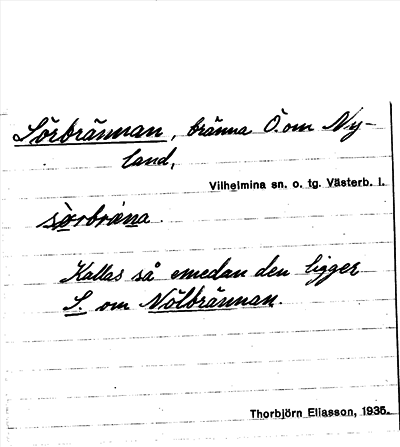 Sörbrännan, bränna Ö. om Ny-
land,
Vilhelmina sn. o. tg. Västerb. l.
Kallas så emedan den ligger
S. om Nölbrännan.
Thorbjörn Eliasson, 1935.